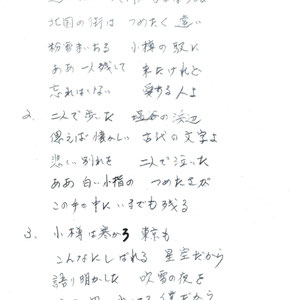 北国の街は つめたく 遠い
粉雪まいある 小樽の駅に
ああ 一人残して 来たけれど
忘れはしない 愛する人よ
2. 二人で歩いた 塩谷の浜辺
偲えば懐かしい 古代の文字よ
悲しい別れを 二人で泣いた
ああ 白い小指の つめたさが
この手の中に いまでも残る
3. 小樽は寒かろ 東京も
こんなにしばれる 星空だから
語り明かした 吹雪の夜を